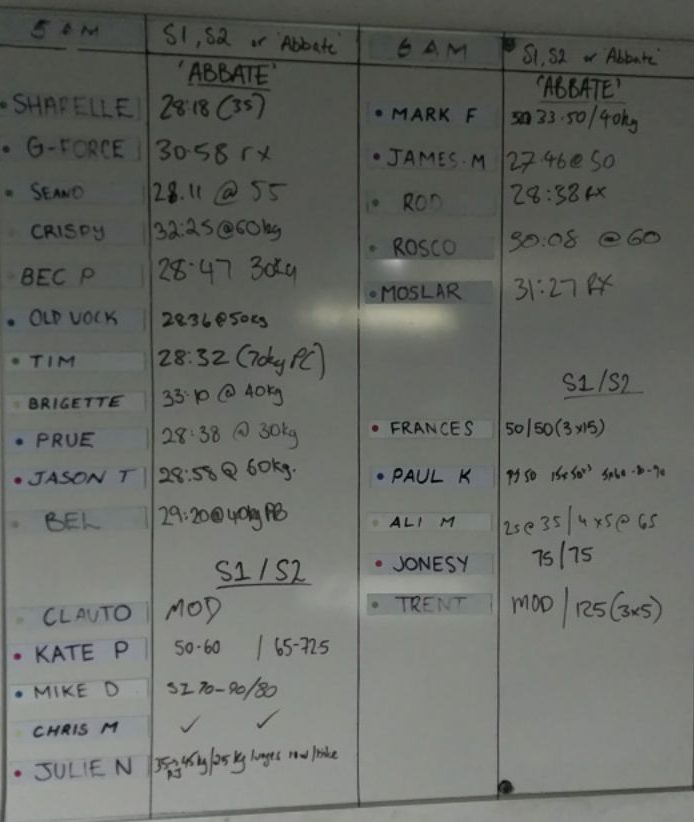 5 AM S1, S2 or 'Abbate'
'ABBATE'
SHARELLE 28:18 (35)
G-FORCE 30.58 rx
SEANO 28.11 @ 55
CRISPY 32:25 @ 60kg
BEC P 28:47 30kg
OLD VOCK 28:36 @ 50kg
TIM 28:32 (70kg PC)
BRIGETTE 33:10 @ 40kg
PRUE 28:38 @ 30kg
JASON T 28:58 @ 60kg.
BEL 29:20 @ 40kg PB
S1 / S2
CLAUTO MOD
KATE P 50-60 / 65-72.5
MIKE D S2 70-90/80
CHRIS M ✓ ✓
JULIE N 45kg/25kg lunges row/bike
6 AM S1, S2 or 'Abbate'
'ABBATE'
MARK F 33.50/40kg
JAMES.M 27.46 @ 50
ROD 28:38 RX
ROSCO 30:08 @ 60
MOSLAR 31:27 RX
S1/S2
FRANCES 50/50 (3x15)
PAUL K
ALI M 25 @ 35 / 4x5 @ 65
JONESY 75/75
TRENT MOD / 125 (3x5)